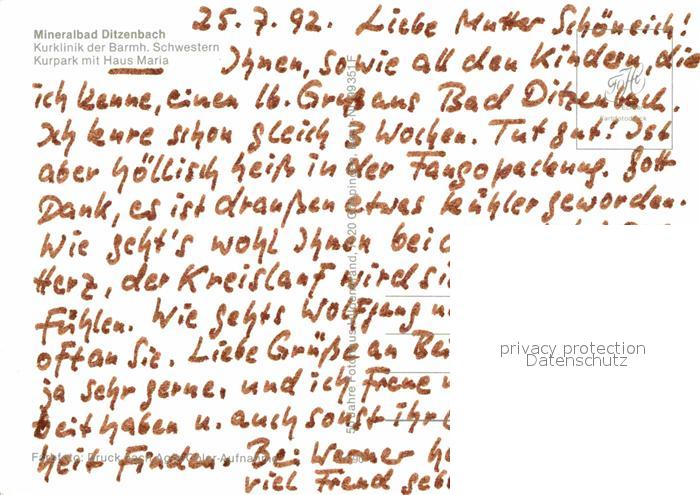 25.7.92. Liebe Mutter Schöneich!
Mineralbad Ditzenbach
Kurklinik der Barmh. Schwestern
Kurpark mit Haus Maria
Ihnen, sowie all den Kindern, die
ich kenne, einen lb. Gruß aus Bad Ditzenbach.
Ich kure schon gleich 3 Wochen. Tut gut! Ist
aber höllisch heiß in der Fangopackung. Gott
Dank, es ist draußen etwas kühler geworden.
Wie geht's wohl Ihnen bei d
Herz, der Kreislauf wird si
Fühlen. Wie gehts Wolfgang u
oft an Sie. Liebe Grüße an Bei
ja sehr gerne, und ich Freue
beit haben u. auch sonst ihr
heit Finden. Bei Werner h
viel Freud geb
Farbfoto: Druck nach Agfa Color-Aufnahme
privacy protection
Datenschutz